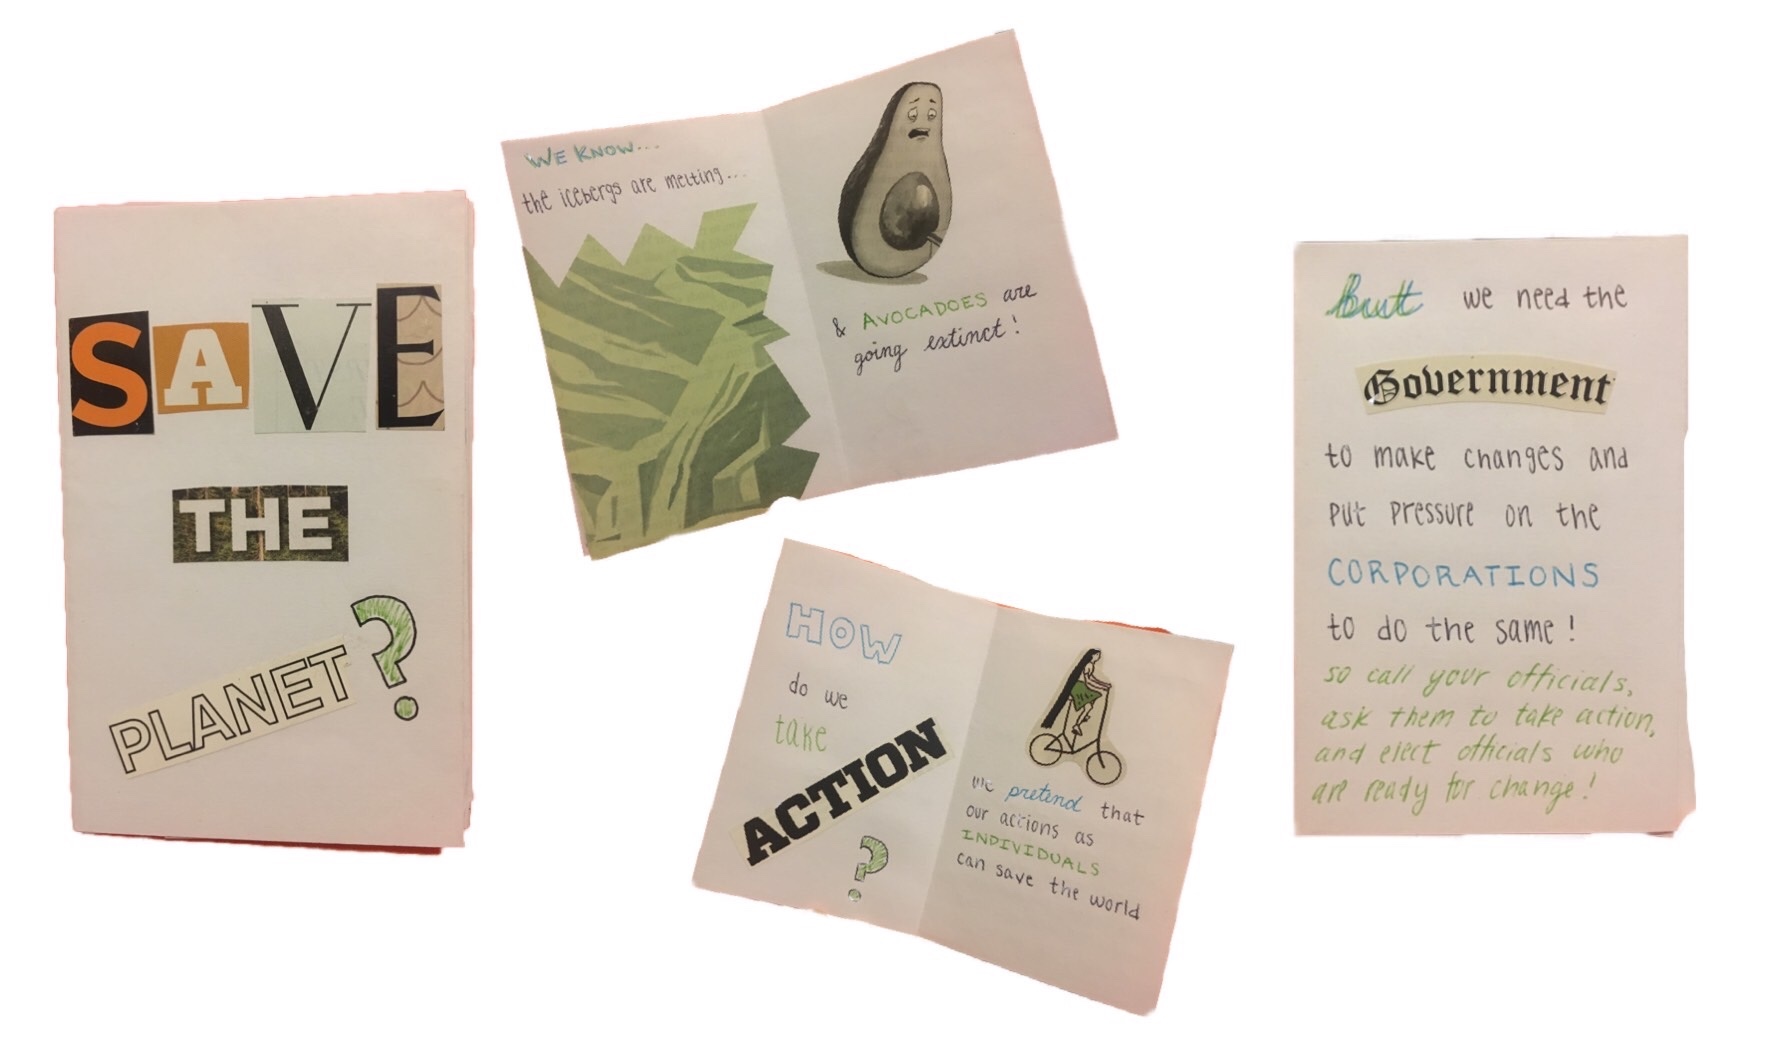 SAVE
THE
PLANET?
WE KNOW...
the icebergs are melting...
& AVOCADOES are
going extinct!
HOW
do we
take
ACTION
?
we pretend that
our actions as
INDIVIDUALS
can save the world
But we need the
Government
to make changes and
put pressure on the
CORPORATIONS
to do the same!
so call your officials,
ask them to take action,
and elect officials who
are ready for change!